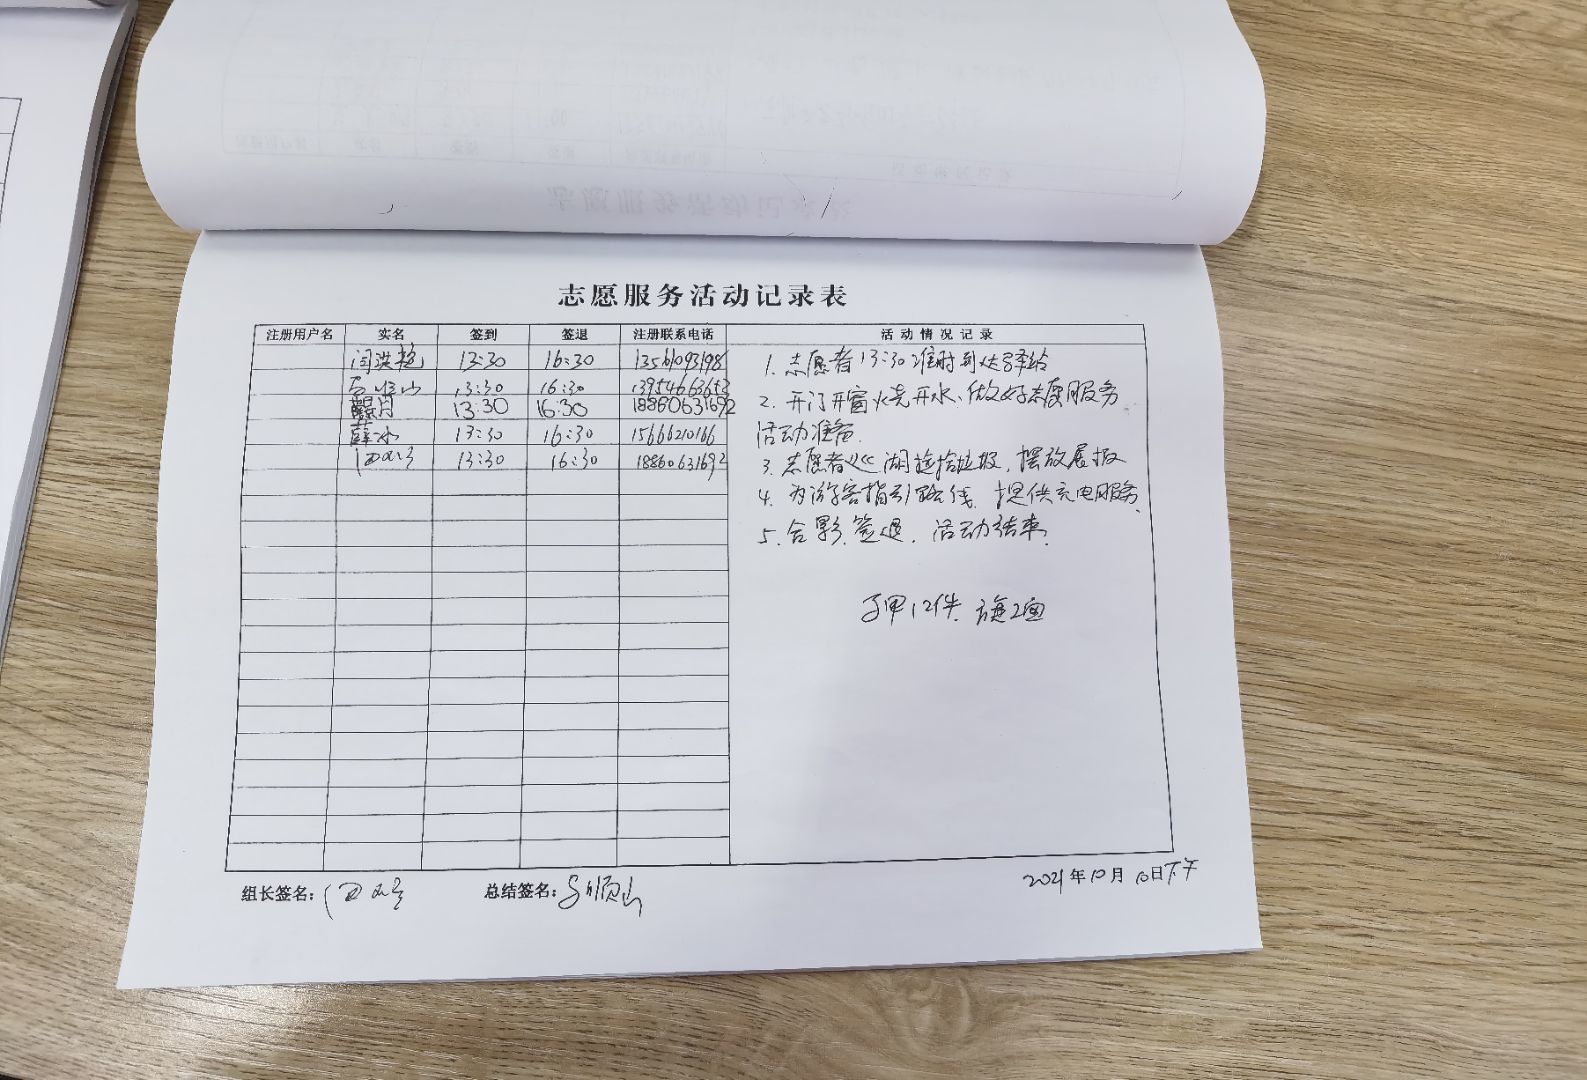 志愿服务活动记录表
注册用户名 实名 签到 签退 注册联系电话 活动情况记录
闫洪艳 13:30 16:30 13561093198
13:30 16:30
13:30 16:30 18860631692
薛冰 13:30 16:30 1566210166
13:30 16:30 18860631692
1. 志愿者13:30准时到达驿站
2. 开门开窗烧开水、做好志愿服务
活动准备.
3. 志愿者巡湖捡拾垃圾, 摆放展板
4. 为游客指引路线, 提供充电服务.
5. 合影. 签退. 活动结束.
马甲12件. 旗2面
组长签名: 总结签名:
2021年10月10日下午